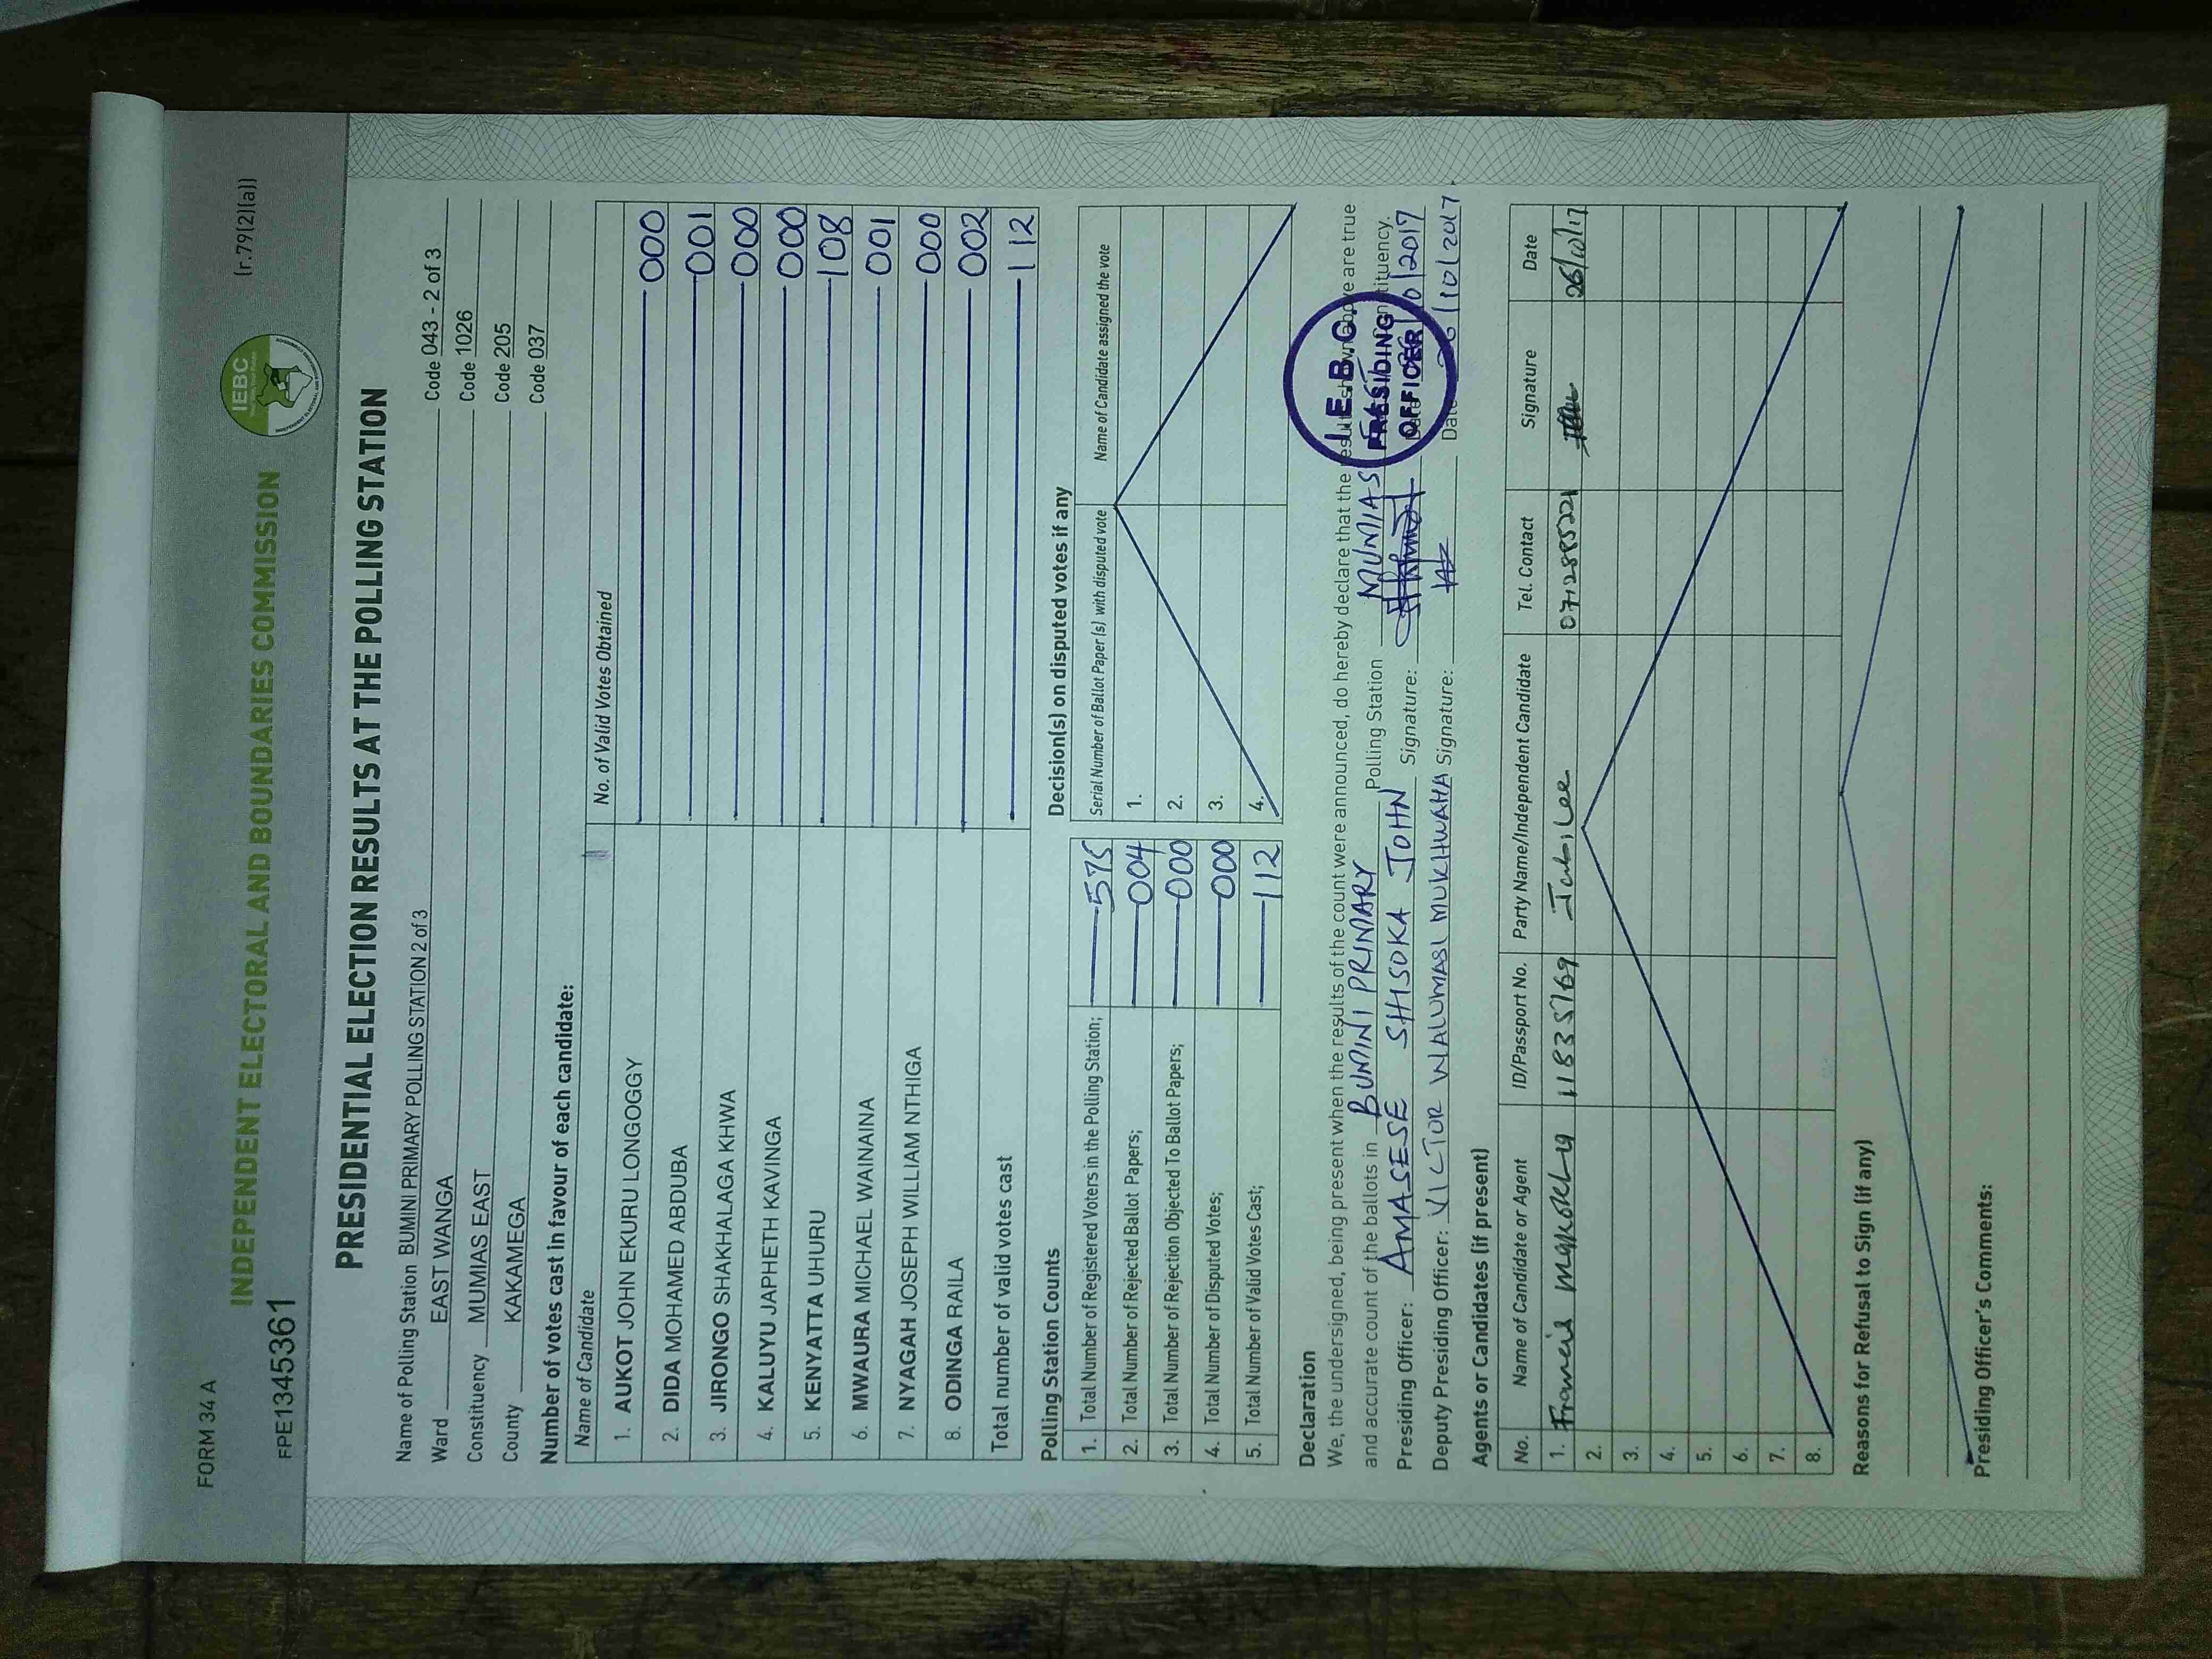 FORM 34 A
(r.79(2)(a))
IEBC
INDEPENDENT ELECTORAL AND BOUNDARIES COMMISSION
FPE1345361
PRESIDENTIAL ELECTION RESULTS AT THE POLLING STATION
Name of Polling Station BUMINI PRIMARY POLLING STATION 2 of 3 Code 043 - 2 of 3
Ward EAST WANGA Code 1026
Constituency MUMIAS EAST Code 205
County KAKAMEGA Code 037
Number of votes cast in favour of each candidate:
Name of Candidate No. of Valid Votes Obtained
1. AUKOT JOHN EKURU LONGOGGY 000
2. DIDA MOHAMED ABDUBA 001
3. JIRONGO SHAKHALAGA KHWA 000
4. KALUYU JAPHETH KAVINGA 000
5. KENYATTA UHURU 108
6. MWAURA MICHAEL WAINAINA 001
7. NYAGAH JOSEPH WILLIAM NTHIGA 000
8. ODINGA RAILA 002
Total number of valid votes cast 112
Polling Station Counts
1. Total Number of Registered Voters in the Polling Station; 575
2. Total Number of Rejected Ballot Papers; 004
3. Total Number of Rejection Objected To Ballot Papers; 000
4. Total Number of Disputed Votes; 000
5. Total Number of Valid Votes Cast; 112
Decision(s) on disputed votes if any
Serial Number of Ballot Paper (s) with disputed vote Name of Candidate assigned the vote
1.
2.
3.
4.
Declaration
We, the undersigned, being present when the results of the count were announced, do hereby declare that the results shown above are true
and accurate count of the ballots in BUMINI PRIMARY Polling Station MUMIAS Constituency.
Presiding Officer: AMASESE SHISOKA JOHN Signature: 10/2017
Deputy Presiding Officer: VICTOR WALUMASI MUKHWAHA Signature: Date 26/10/2017
I.E.B.C.
PRESIDING
OFFICER
Agents or Candidates (if present)
No. Name of Candidate or Agent ID/Passport No. Party Name/Independent Candidate Tel. Contact Signature Date
1. Francis 11835769 Jubilee 0712885221 26/10/17
2.
3.
4.
5.
6.
7.
8.
Reasons for Refusal to Sign (if any)
Presiding Officer's Comments: